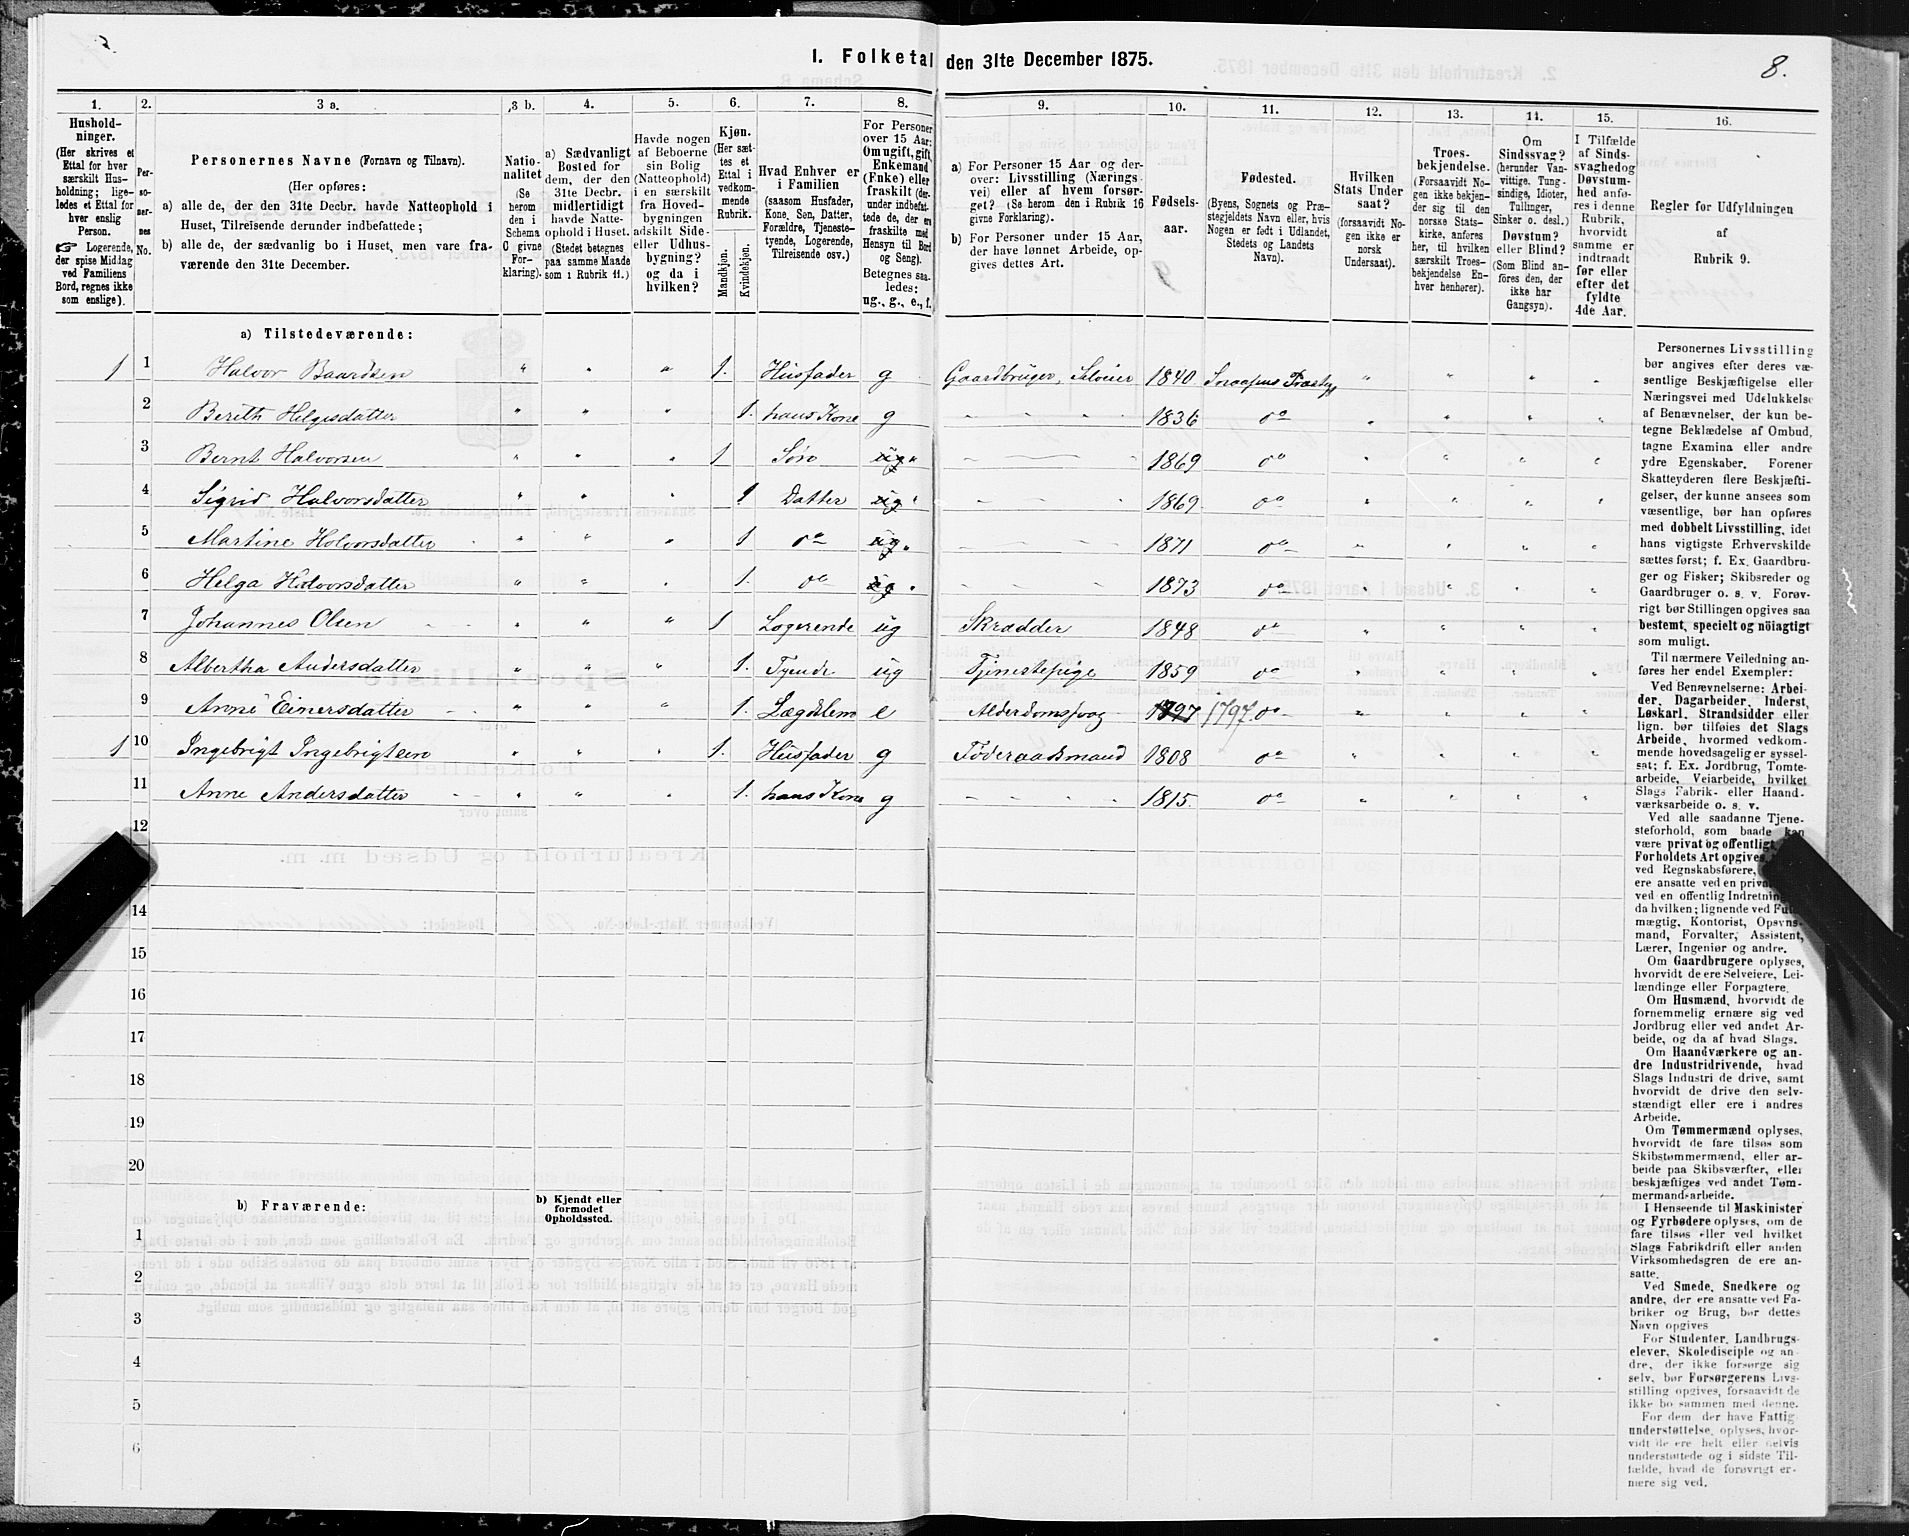 8.
1. Folketal den 31te December 1875.
1. 2. 3 a. 3 b. 4. 5. 6. 7. 8. 9. 10. 11. 12. 13. 14. 15. 16.
Hushold-
ninger.
(Her skrives et
Ettal for hver
særskilt Hus-
holdning; lige-
ledes et Ettal for
hver enslig
Person.
☞ Logerende,
der spise Middag
ved Familiens
Bord, regnes ikke
som enslige).
Per-
so-
ner-
nes
No.
Personernes Navne (Fornavn og Tilnavn).
(Her opføres:
a) alle de, der den 31te Decbr. havde Natteophold i
Huset, Tilreisende derunder indbefattede;
b) alle de, der sædvanlig bo i Huset, men vare fra-
værende den 31te December.
Natio-
nalitet
(Se
herom
den i
Schema
C givne
For-
klaring).
a) Sædvanligt
Bosted for
dem, der den
31te Decbr.
midlertidigt
havde Natte-
ophold i Huset.
(Stedet betegnes
paa samme Maade
som i Rubrik 11.)
Havde nogen
af Beboerne
sin Bolig
(Natteophold)
i en særskilt
fra Hoved-
bygningen
adskilt Side-
eller Udhus-
bygning?
og da i
hvilken?
Kjøn.
(Her sæt-
tes et
Ettal i
vedkom-
mende
Rubrik.
Mandkjøn.
Kvindekjøn.
Hvad Enhver er
i Familien
(saasom Husfader,
Kone, Søn, Datter,
Forældre, Tjeneste-
tyende, Logerende,
Tilreisende osv.)
For Personer
over 15 Aar:
Om ugift, gift,
Enkemand
(Enke) eller
fraskilt (der-
under indbefat-
tede de, der ere
fraskilte med
Hensyn til Bord
og Seng).
Betegnes saa-
ledes:
ug., g., e., f.
a) For Personer 15 Aar og der-
over: Livsstilling (Nærings-
vei) eller af hvem forsør-
get? (Se herom den i Rubrik 16
givne Forklaring).
b) For Personer under 15 Aar,
der have lønnet Arbeide, op-
gives dettes Art.
Fødsels-
aar.
Fødested.
(Byens, Sognets og Præ-
stegjeldets Navn eller, hvis
Nogen er født i Udlandet,
Stedets og Landets
Navn).
Hvilken
Stats Under-
saat?
(forsaavidt No-
gen ikke er
norsk
Undersaat).
Troes-
bekjendelse.
(Forsaavidt No-
gen ikke bekjen-
der sig til den
norske Stats-
kirke, anføres
her, til hvilken
særskilt Troes-
bekjendelse En-
hver henhører).
Om
Sindssvag?
(herunder Van-
vittige, Tung-
sindige, Idioter,
Tullinger,
Sinker o. desl.)
Døvstum?
eller Blind?
(Som Blind an-
føres den, der
ikke har
Gangsyn).
I Tilfælde
af Sinds-
svaghed og
Døvstum-
hed anfø-
res i denne
Rubrik,
hvorvidt
samme er
indtraadt
før eller
efter det
fyldte
4de Aar.
Regler for Udfyldningen
af
Rubrik 9.
a) Tilstedeværende:
1 1 Halvor Baardsen " " " 1. Husfader g Gaardbruger, Selveier 1840 Snaasens Præstgj " " " "
2 Bereth Helgesdatter " " " 1. hans Kone g - - - 1836 do " " " "
3 Bernt Halvorsen " " " 1 Søn ug " - - - 1869 do " " " "
4 Sigrid Halvorsdatter " " " 1 Datter ug " - - - 1869 do " " " "
5 Martine Halvorsdatter " " " 1 do ug " - - - 1871 do " " " "
6 Helga Halvorsdatter " " " 1. do ug " - - - 1873 do " " " "
7 Johannes Olsen " " " 1 Logerende ug Skrædder 1848 do " " " "
8 Albertha Andersdatter " " " 1. Tyende ug Tjenestepige 1859 do " " " "
9 Anne Einersdatter " " " 1. Lægdslem e Alderdomssvag 1797 1797 do " " " "
1 10 Ingebrigt Ingebrigtsen " " " 1. Husfader g Føderaadsmand 1808 do " " " "
11 Anne Andersdatter " " " 1. hans Kone g - - - 1815. do " " " "
12
14
15
16
17
18
19
20
b) Fraværende:
b) Kjendt eller
formodet
Opholdssted.
1
2
3
4
5
6
Personernes Livsstilling
bør angives efter deres væ-
sentlige Beskjæftigelse eller
Næringsvei med Udelukkelse
af Benævnelser, der kun be-
tegne Beklædelse af Ombud,
tagne Examina eller andre
ydre Egenskaber. Forener
Skatteyderen flere Beskjæfti-
gelser, der kunne ansees som
væsentlige, bør han opføres
med dobbelt Livsstilling, idet
hans vigtigste Erhvervskilde
sættes først; f. Ex. Gaardbru-
ger og Fisker; Skibsreder og
Gaardbruger o. s. v. Forøv-
rigt bør Stillingen opgives saa
bestemt, specielt og nöiagtigt
som muligt.
Til nærmere Veiledning an-
føres her endel Exempler:
Ved Benævnelserne: Arbei-
der, Dagarbeider, Inderst,
Løskarl, Strandsidder eller
lign. bør tilføies det Slags
Arbeide, hvormed vedkom-
mende hovedsagelig er syssel-
sat; f. Ex. Jordbrug, Tomte-
arbeide, Veiarbeide, hvilket
Slags Fabrik- eller Haand-
værksarbeide o. s. v.
Ved alle saadanne Tjene-
steforhold, som baade kan
være privat og offentligt,
Forholdets Art opgives,
ved Regnskabsførere,
ere ansatte ved en privat
ved en offentlig Indretning
da hvilken; lignende ved Fuld-
mægtig, Kontorist, Opsyns-
mand, Forvalter, Assistent,
Lærer, Ingeniør og andre.
Om Gaardbrugere oplyses,
hvorvidt de ere Selveiere, Lei-
lændinge eller Forpagtere.
Om Husmænd, hvorvidt de
fornemmelig ernære sig ved
Jordbrug eller ved andet Ar-
beide, og da af hvad Slags.
Om Haandværkere og an-
dre Industridrivende, hvad
Slags Industri de drive, samt
hvorvidt de drive den selv-
stændigt eller ere i andres
Arbeide.
Om Tømmermænd oplyses,
hvorvidt de fare tilsøs som
Skibstømmermænd, eller ar-
beide paa Skibsværfter, eller
beskjæftiges ved andet Tøm-
mermandsarbeide.
I Henseende til Maskinister
og Fyrbødere oplyses, om de
fare tilsøs eller ved hvilket
Slags Fabrikdrift eller anden
Virksomhedsgren de ere an-
satte.
Ved Smede, Snedkere og
andre, der ere ansatte ved Fa-
briker og Brug, bør dettes
Navn opgives
For Studenter, Landbrugs-
elever, Skoledisciple og an-
dre, der ikke forsørge sig
selv, bør Forsørgerens Livs-
stilling opgives, forsaavidt de
ikke bo sammen med denne.
For dem der have Fattig-
understøttelse, oplyses, hvor-
vidt de ere helt eller delvis
understøttede og i sidste Til-
fælde, hvad de forøvrigt er-
nære sig ved.